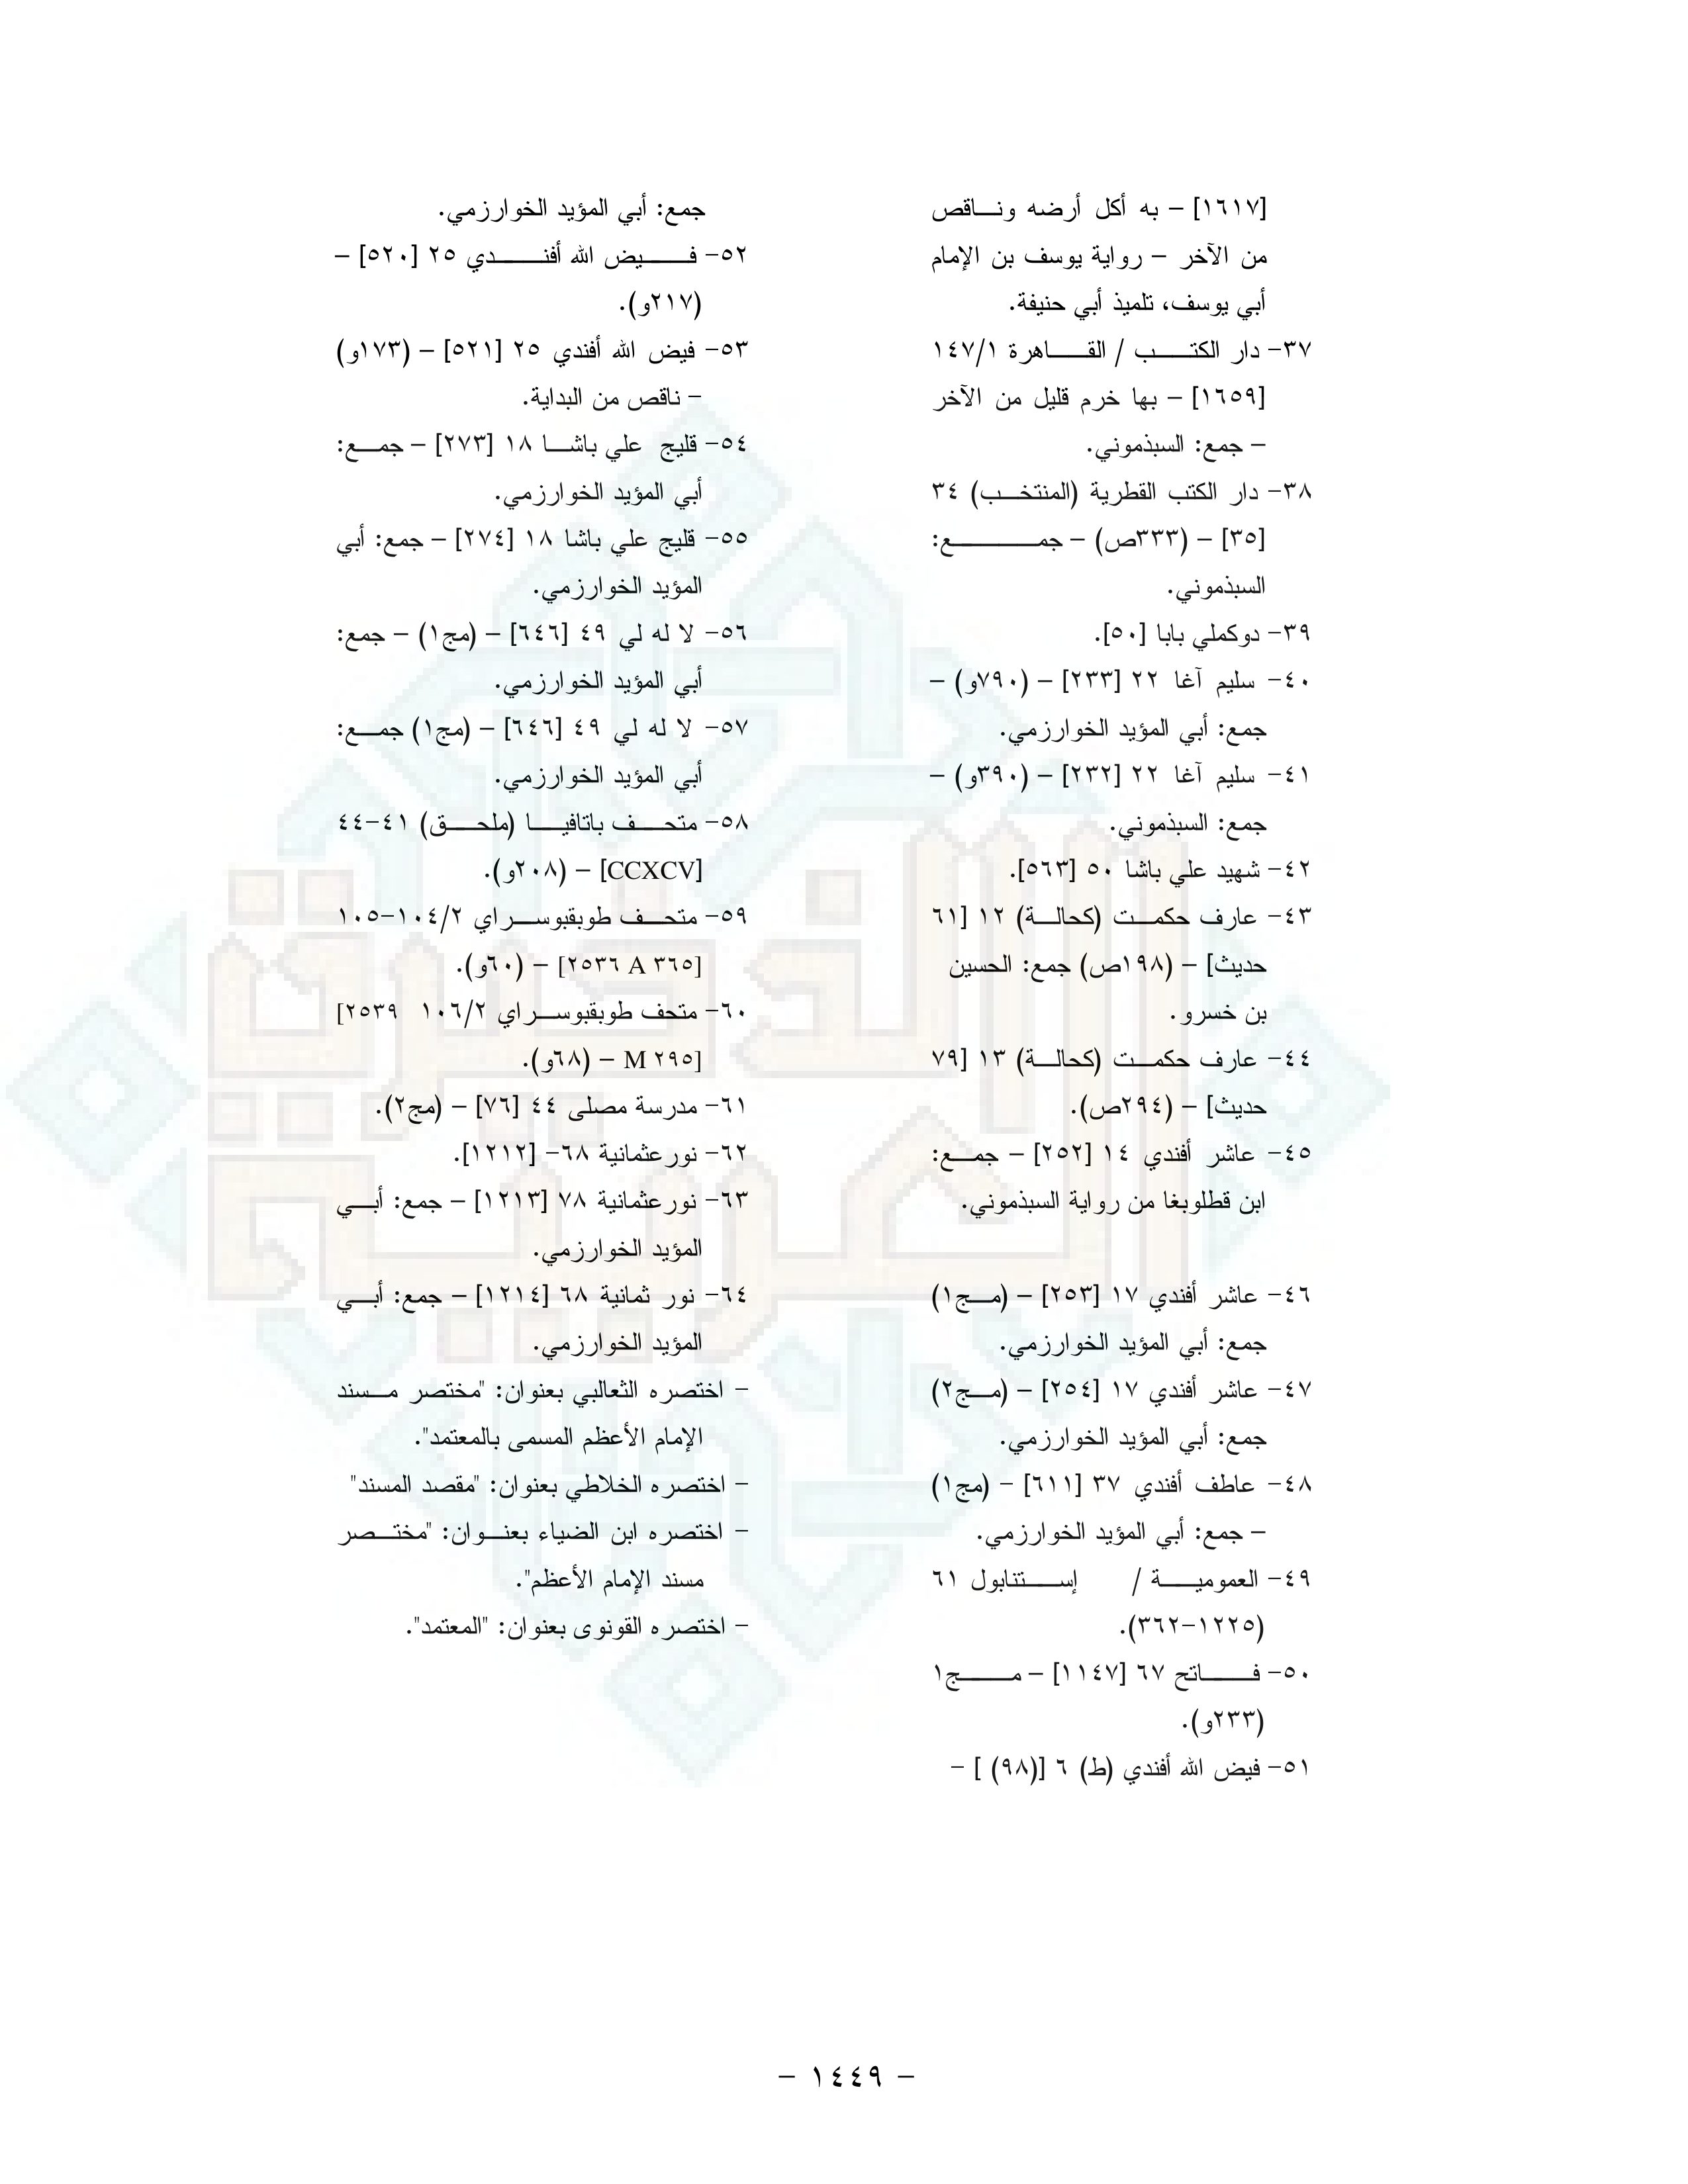 [١٦١٧] – به أكل أرضه وناقص
من الآخر – رواية يوسف بن الإمام
أبي يوسف، تلميذ أبي حنيفة.
٣٧- دار الكتب / القاهرة ١٤٧/١
[١٦٥٩] – بها خرم قليل من الآخر
– جمع: السبذموني.
٣٨- دار الكتب القطرية (المنتخب) ٣٤
[٣٥] – (٣٣٣ص) – جمع:
السبذموني.
٣٩- دوكملي بابا [٥٠].
٤٠- سليم آغا ٢٢ [٢٣٣] – (٧٩٠و) –
جمع: أبي المؤيد الخوارزمي.
٤١- سليم آغا ٢٢ [٢٣٢] – (٣٩٠و) –
جمع: السبذموني.
٤٢- شهيد علي باشا ٥٠ [٥٦٣].
٤٣- عارف حكمت (كحالة) ١٢ [٦١
حديث] – (١٩٨ص) جمع: الحسين
بن خسرو.
٤٤- عارف حكمت (كحالة) ١٣ [٧٩
حديث] – (٢٩٤ص).
٤٥- عاشر أفندي ١٤ [٢٥٢] – جمع:
ابن قطلوبغا من رواية السبذموني.
٤٦- عاشر أفندي ١٧ [٢٥٣] – (مج١)
جمع: أبي المؤيد الخوارزمي.
٤٧- عاشر أفندي ١٧ [٢٥٤] – (مج٢)
جمع: أبي المؤيد الخوارزمي.
٤٨- عاطف أفندي ٣٧ [٦١١] – (مج١)
– جمع: أبي المؤيد الخوارزمي.
٤٩- العمومية / إستنابول ٦١
(١٢٢٥-٣٦٢).
٥٠- فاتح ٦٧ [١١٤٧] – مج١
(٢٣٣و).
٥١- فيض الله أفندي (ط) ٦ [(٩٨) ] –
جمع: أبي المؤيد الخوارزمي.
٥٢- فيض الله أفندي ٢٥ [٥٢٠] –
(٢١٧و).
٥٣- فيض الله أفندي ٢٥ [٥٢١] – (١٧٣و)
– ناقص من البداية.
٥٤- قليج علي باشا ١٨ [٢٧٣] – جمع:
أبي المؤيد الخوارزمي.
٥٥- قليج علي باشا ١٨ [٢٧٤] – جمع: أبي
المؤيد الخوارزمي.
٥٦- لا له لي ٤٩ [٦٤٦] – (مج١) – جمع:
أبي المؤيد الخوارزمي.
٥٧- لا له لي ٤٩ [٦٤٦] – (مج١) جمع:
أبي المؤيد الخوارزمي.
٥٨- متحف باتافيا (ملحق) ٤١-٤٤
[CCXCV] – (٢٠٨و).
٥٩- متحف طوبقبوسراي ١٠٤/٢-١٠٥
[٢٥٣٦ A ٣٦٥] – (٦٠و).
٦٠- متحف طوبقبوسراي ١٠٦/٢ ٢٥٣٩]
[M ٢٩٥ – (٦٨و).
٦١- مدرسة مصلى ٤٤ [٧٦] – (مج٢).
٦٢- نورعثمانية ٦٨- [١٢١٢].
٦٣- نورعثمانية ٧٨ [١٢١٣] – جمع: أبي
المؤيد الخوارزمي.
٦٤- نور ثمانية ٦٨ [١٢١٤] – جمع: أبي
المؤيد الخوارزمي.
– اختصره الثعالبي بعنوان: "مختصر مسند
الإمام الأعظم المسمى بالمعتمد".
– اختصره الخلاطي بعنوان: "مقصد المسند"
– اختصره ابن الضياء بعنوان: "مختصر
مسند الإمام الأعظم".
– اختصره القونوى بعنوان: "المعتمد".
– ١٤٤٩ –